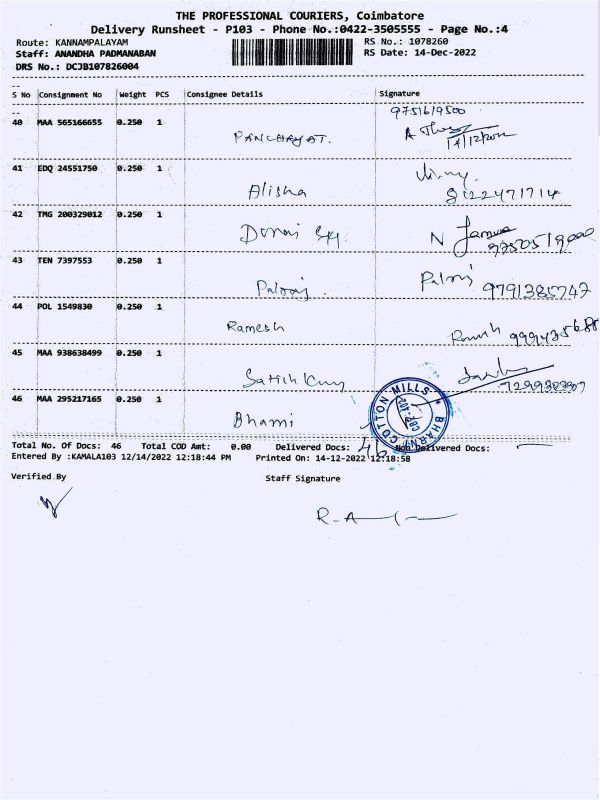 THE PROFESSIONAL COURIERS, Coimbatore
Delivery Runsheet - P103 - Phone No.:0422-3505555 - Page No.:4
Route: KANNAMPALAYAM RS No.: 1078260
Staff: ANANDHA PADMANABAN RS Date: 14-Dec-2022
DRS No.: DCJB107826004
S No Consignment No Weight PCS Consignee Details Signature
9751619500
40 MAA 565166655 0.250 1 PANCHAYAT.
14/12/2022
41 EDQ 24551750 0.250 1
Alisha 8122471714
42 TMG 200329012 0.250 1
N
43 TEN 7397553 0.250 1
Palraj 9791385747
44 POL 1549830 0.250 1
Ramesh
45 MAA 938638499 0.250 1
Satish
46 MAA 295217165 0.250 1
BHARNI COTTON MILLS
Total No. Of Docs: 46 Total COD Amt: 0.00 Delivered Docs: 46 Non Delivered Docs:
Entered By :KAMALA103 12/14/2022 12:18:44 PM Printed On: 14-12-2022 12:18:58
Verified By Staff Signature